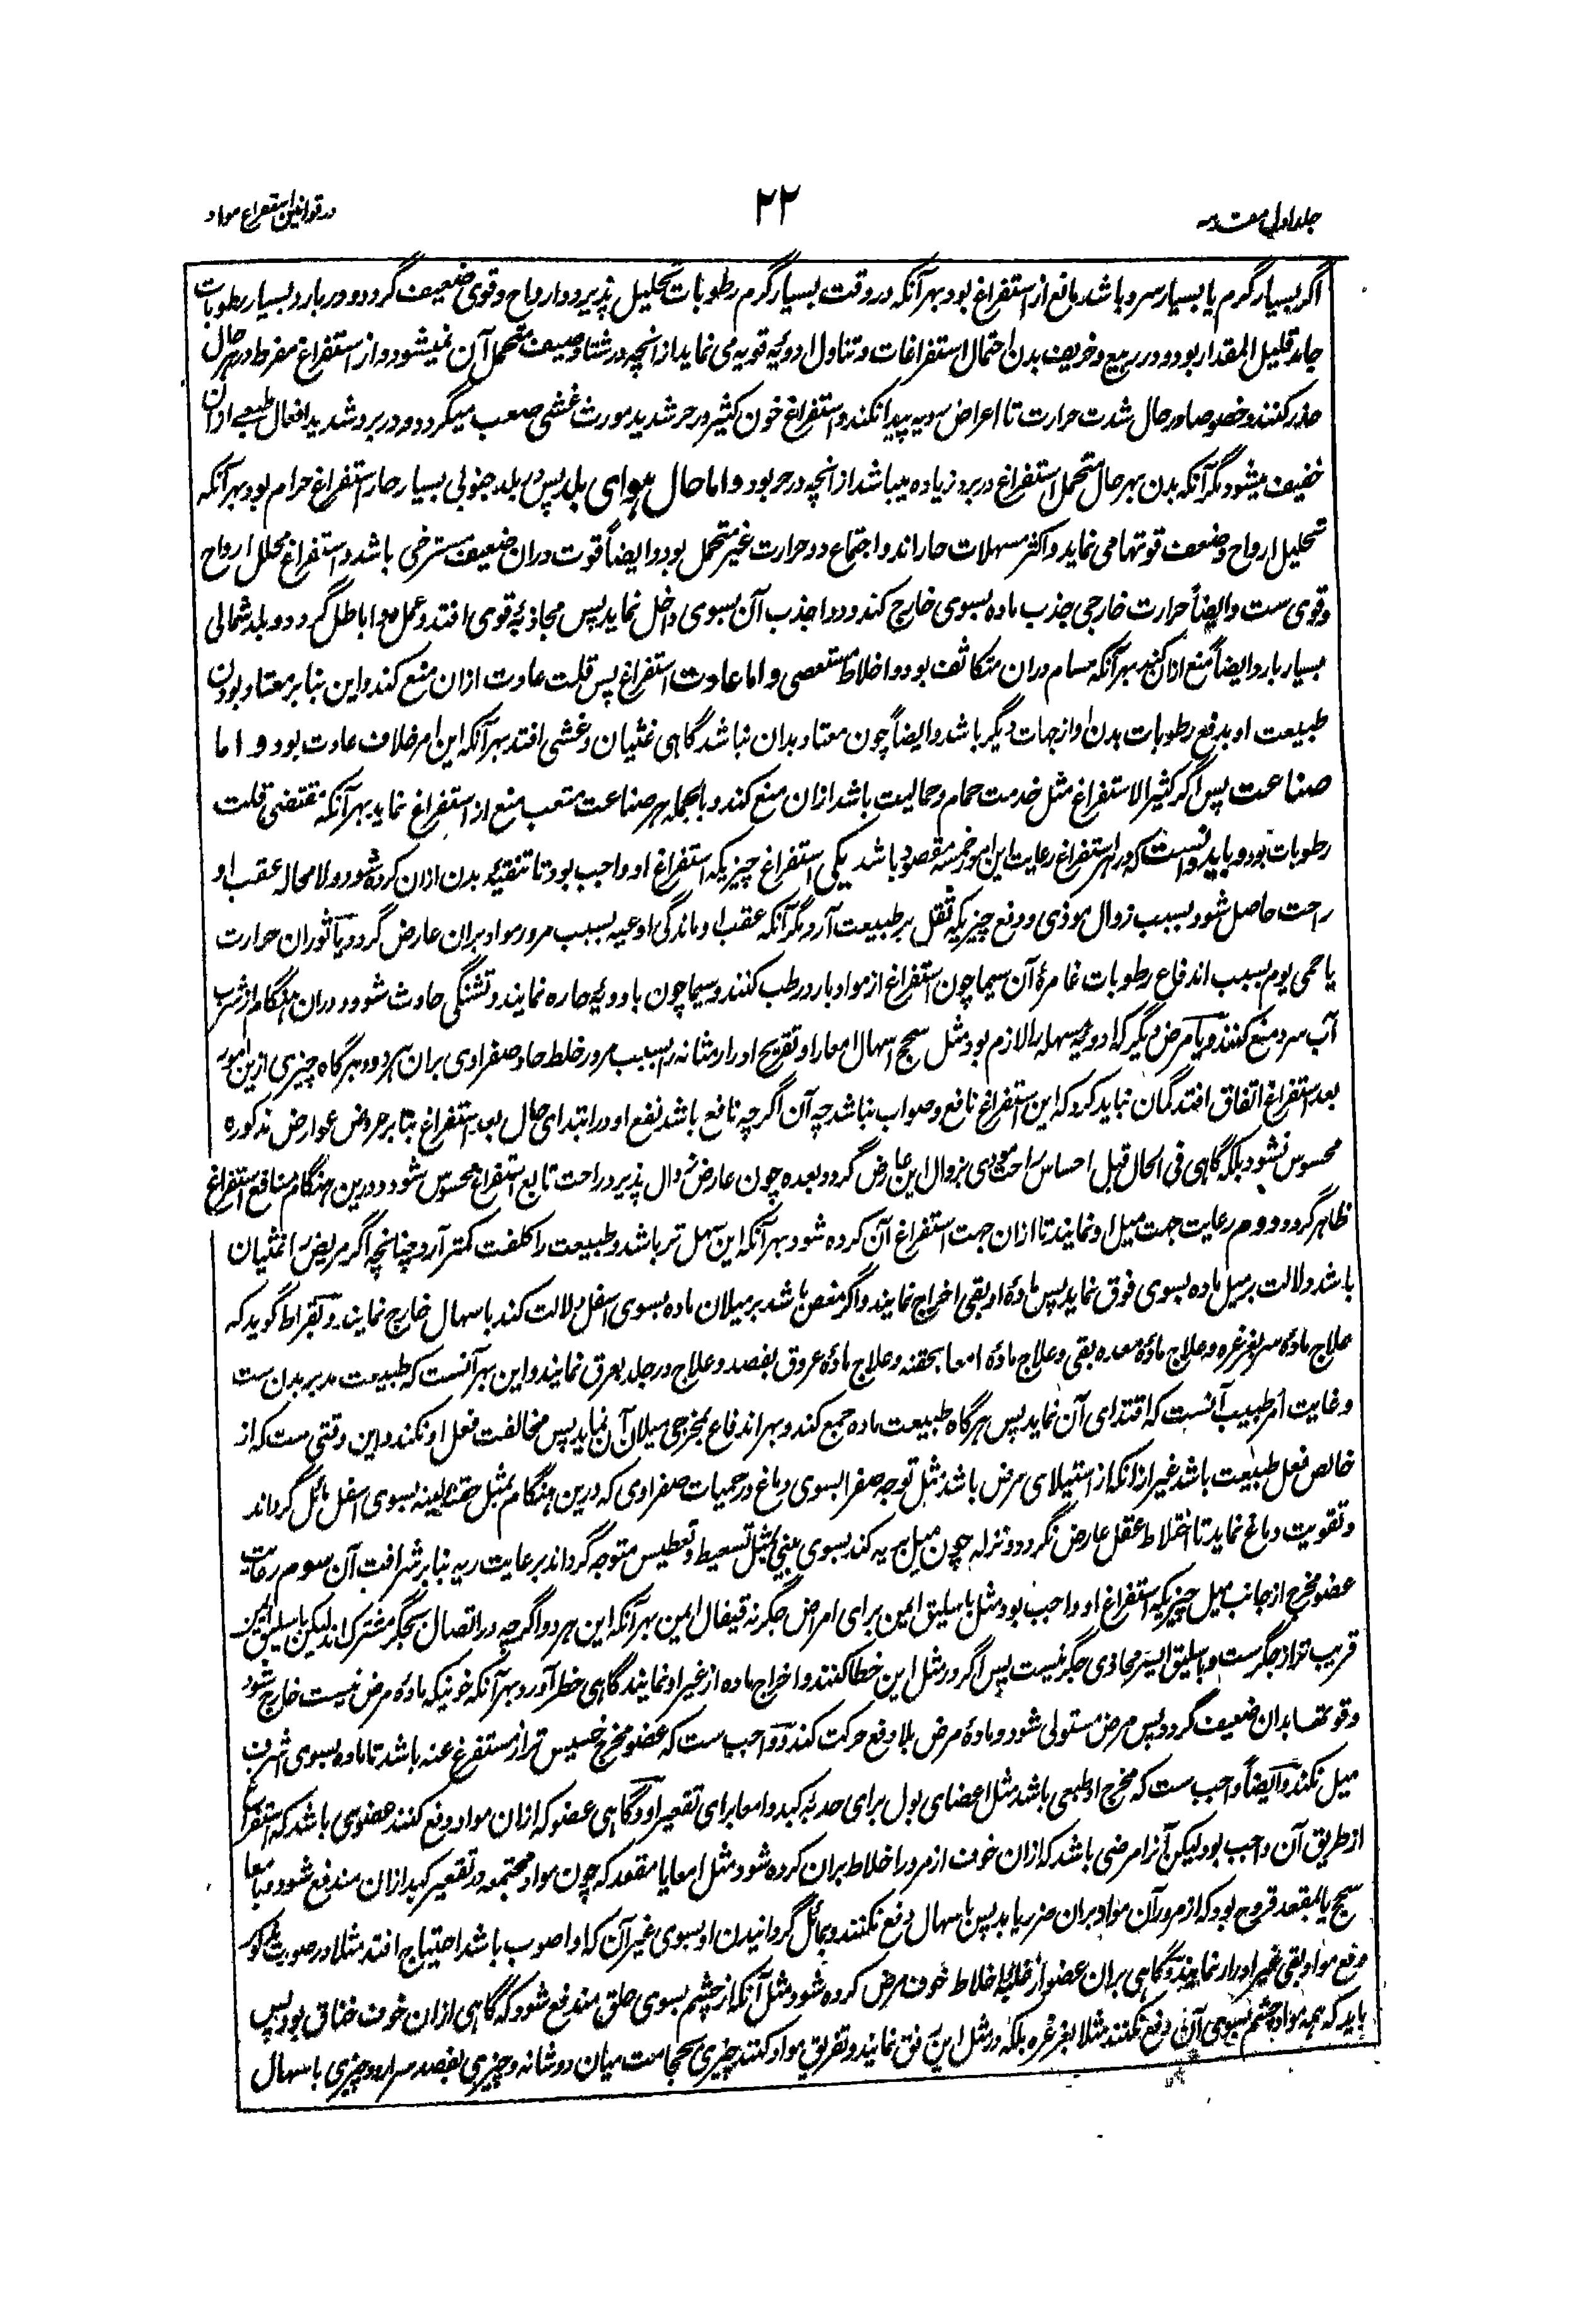 جلد اول مقدمه
۲۲
در قوانین استفراغ مواد
اگر بسیار گرم یا بسیار سرد باشد مانع از استفراغ بود بهر آنکه در وقت بسیار گرم رطوبات تحلیل پذیرد و ارواح و قوی ضعیف گردد و در بارد بسیار رطوبات
جامد قلیل المقدار بود و در ربیع و خریف بدن احتمال استفراغات و تناول ادویه قویه می نماید از انچه در شتا و صیف متحمل آن نمیشود و از استفراغ مفرط در هر حال
حذر کنند و خصوصا در حال شدت حرارت تا اعراض ردیه پیدا نکند و استفراغ خون کثیر در حر شدید مورث غشی صعب میگردد و در برد شدید افعال طبیعی ازان
خفیف میشود مگر آنکه بدن بهر حال متحمل استفراغ در برد زیاده میباشد از انچه در حر بود و اما حال هوای بلد پس در بلد جنوبی بسیار حار استفراغ حرام بود بهر آنکه
تحلیل ارواح و ضعف قوتها می نماید و اکثر مسهلات حار اند و اجتماع دو حرارت غیر متحمل بود و ایضاً قوت دران ضعیف مسترخی باشد و استفراغ محلل ارواح
و قوی ست و ایضاً حرارت خارجی جذب ماده بسوی خارج کند و دوا جذب آن بسوی داخل نماید پس مجاذبۀ قوی افتد و عمل دوا باطل گردد و بلد شمالی
بسیار بارد ایضاً منع ازان کند بهر آنکه مسام دران متکاثف بود و اخلاط مستعصی و اما عادت استفراغ پس قلت عادت ازان منع کند و این بنا بر معتاد بودن
طبیعت او بدفع رطوبات بدن او از جهات دیگر باشد و ایضاً چون معتاد بدان نباشد گاهی غثیان و غشی افتد بهر آنکه این امر خلاف عادت بود و اما
صناعت پس اگر کثیر الاستفراغ مثل خدمت حمام و حمالیت باشد ازان منع کند و بالجمله هر صناعت متعب منع از استفراغ نماید بهر آنکه مقتضی قلت
رطوبات بود و باید دانست که در هر استفراغ رعایت این امور خمسه مقصود باشد یکی استفراغ چیزیکه استفراغ او واجب بود تا تنقیه بدن ازان کرده شود و لامحاله عقب او
راحت حاصل شود بسبب زوال موذی و دفع چیزیکه ثقل بر طبیعت آرد مگر آنکه عقب او ماندگی اوعیه بسبب مرور مواد بران عارض گردد یا ثوران حرارت
یا حمی یوم بسبب اندفاع رطوبات غامرۀ آن سیما چون استفراغ از مواد بارد رطب کنند و سیما چون بادویه حاره نمایند و تشنگی حادث شود و دران هنگام از شرب
آب سرد منع کنند و یا مرض دیگر که ادویه مسهله را لازم بود مثل سحج اسهال امعا را و تقریح ادرار مثانه را بسبب مرور خلط حاد صفراوی بران هر دو و هرگاه چیزی ازین امور
بعد استفراغ اتفاق افتد گمان نباید کرد که این استفراغ نافع و صواب نباشد چه آن اگر چه نافع باشد نفع او در ابتدای حال بعد استفراغ بنا بر عروض عوارض مذکوره
محسوس نشود بلکه گاهی فی الحال قبل احساس راحت مودی بزوال این عارض گردد و بعده چون عارض زوال پذیرد راحت تابع استفراغ محسوس شود و درین هنگام منافع استفراغ
ظاهر گردد دوم رعایت جهت میل او نمایند تا ازان جهت استفراغ آن کرده شود بهر آنکه این سهل تر باشد و طبیعت را کلفت کمتر آرد چنانچه اگر مریض را غثیان
باشد دلالت بر میل ماده بسوی فوق نماید پس مادۀ او بقی اخراج نمایند و اگر مغص باشد بر میلان ماده بسوی اسفل دلالت کند باسهال خارج نمایند و بقراط گوید که
علاج مادۀ سر بغرغره و علاج مادۀ معده بقی و علاج مادۀ امعا بحقنه و علاج مادۀ عروق بفصد و علاج در جلد بعرق نمایند و این بهر آنست که طبیعت مدبر بدن ست
و غایت امر طبیب آنست که اقتدای آن نماید پس هرگاه طبیعت ماده جمع کند و بهر اندفاع بمخرجی میلان آن نماید پس مخالفت فعل او نکند و این وقتی ست که از
خالص فعل طبیعت باشد غیر ازانکه از استیلای مرض باشد مثل توجه صفرا بسوی دماغ در حمیات صفراوی که درین هنگام بمثل حقنه لینه بسوی اسفل مائل گرداند
و تقویت دماغ نماید تا اختلاط عقل عارض نگردد و نزله چون میل بریه کند بسوی بینی بمثل تسعیط و تعطیس متوجه گرداند برعایت ریه بنا بر شرافت آن سوم رعایت
عضو مخرج از جانب میل چیزیکه استفراغ او واجب بود مثل باسلیق ایمن برای امراض جگر نه قیفال ایمن بهر آنکه این هر دو اگر چه در اتصال بجگر مشترک اند لیکن باسلیق ایمن
قریب تر از جگر ست و باسلیق ایسر محاذی جگر نیست پس اگر در مثل این خطا کنند و اخراج ماده از غیر او نمایند گاهی خطر آورد بهر آنکه خونیکه مادۀ مرض نیست خارج شود
و قوتها بدان ضعیف گردد پس مرض مستولی شود و مادۀ مرض بلا دفع حرکت کند و واجب ست که عضو مخرج خسیس تر از مستفرغ عنه باشد تا ماده بسوی اشرف
میل نکند و ایضاً واجب ست که مخرج او طبعی باشد مثل اعضای بول برای حدبۀ کبد و امعا برای تقعیر او و گاهی عضو که ازان مواد دفع کنند عضوی باشد که استفراغ
از طریق آن واجب بود لیکن آنرا مرضی باشد که ازان خوف از مرور اخلاط بران کرده شود مثل امعا یا مقعد که چون مواد مجتمعه در تقعیر کبد ازان مندفع شود و بامعا
سحج یا بمقعد قروح بود که از مرور آن مواد بران ضرر یابد پس باسهال دفع نکنند و بمائل گردانیدن او بسوی غیر آن که اوا صوب باشد احتیاج افتد مثلا در صورت مذکور
دفع مواد بقی غیر ادرار نمایند و گاهی بران عضو از غلبۀ اخلاط خوف مرض کرده شود مثل آنکه از چشم بسوی حلق مندفع شود که گاهی ازان خوف خناق بود پس
باید که همه مواد چشم بسوی آن دفع نکنند مثلا بغرغره بلکه در مثل این رفق نمایند و تفریق مواد کنند چیزی بحجامت میان دو شانه و چیزی بفصد سرارو و چیزی باسهال